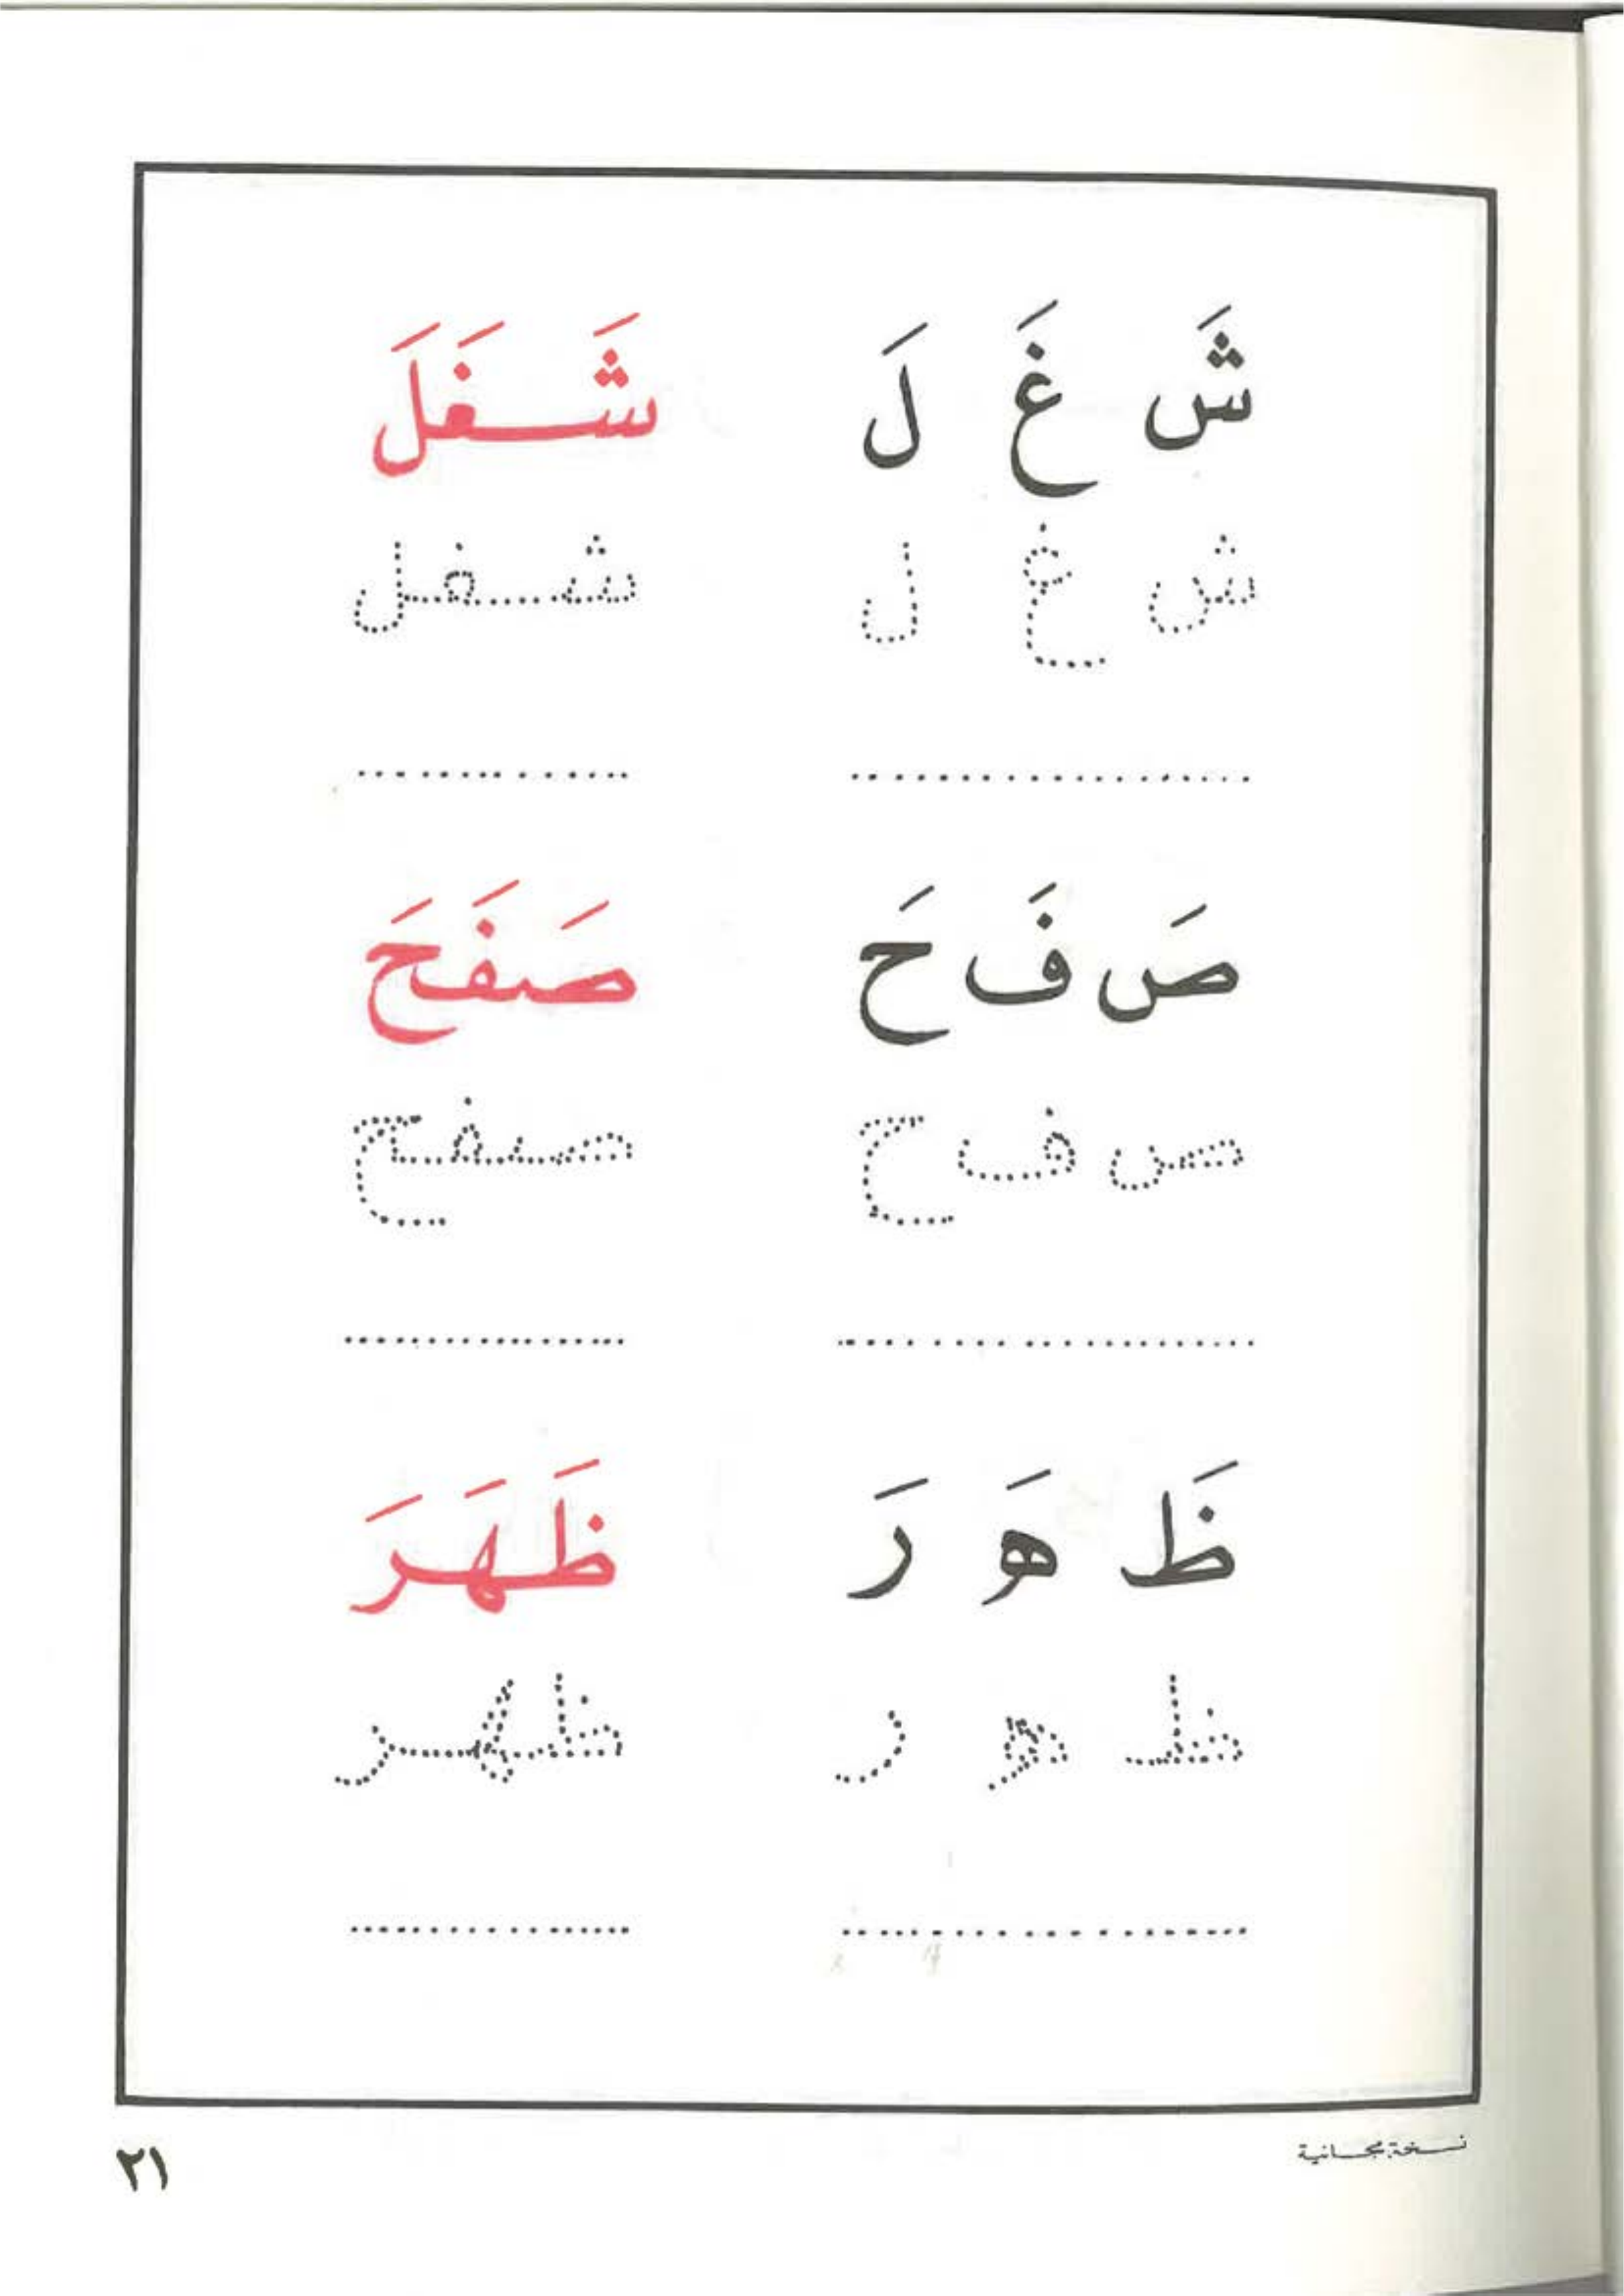 شَ غَ لَ شَـغَلَ
ش غ ل شـغل
صَ فَ حَ صَفَحَ
ص ف ح صفح
ظَ هَ رَ ظَهَرَ
ظ ه ر ظهر
نسخة مجانية
٢١